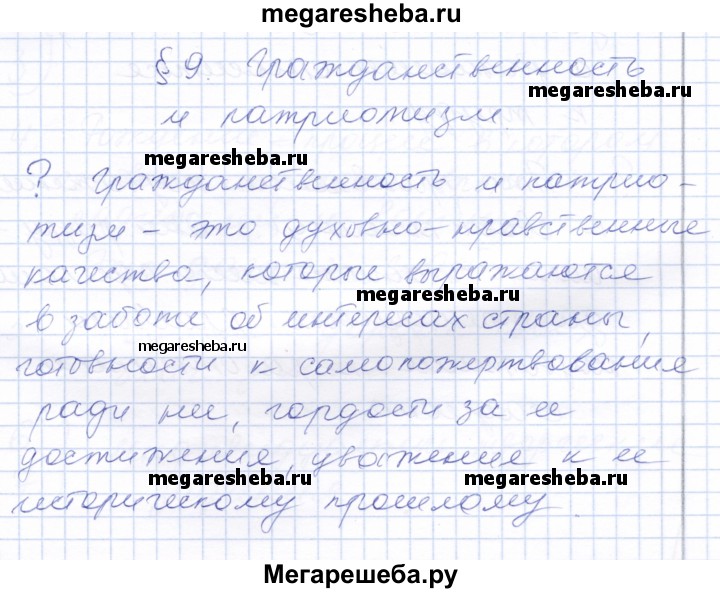 megaresheba.ru
§ 9. Гражданственность
megaresheba.ru
и патриотизм.
megaresheba.ru
? Гражданственность и патрио-
тизм – это духовно-нравственные
качества, которые выражаются
megaresheba.ru
в заботе об интересах страны,
megaresheba.ru
готовности к самопожертвования
ради не, гордости за ее
достижения, уважение к ее
megaresheba.ru
megaresheba.ru
историческому прошлому.
Мегарешеба.ру